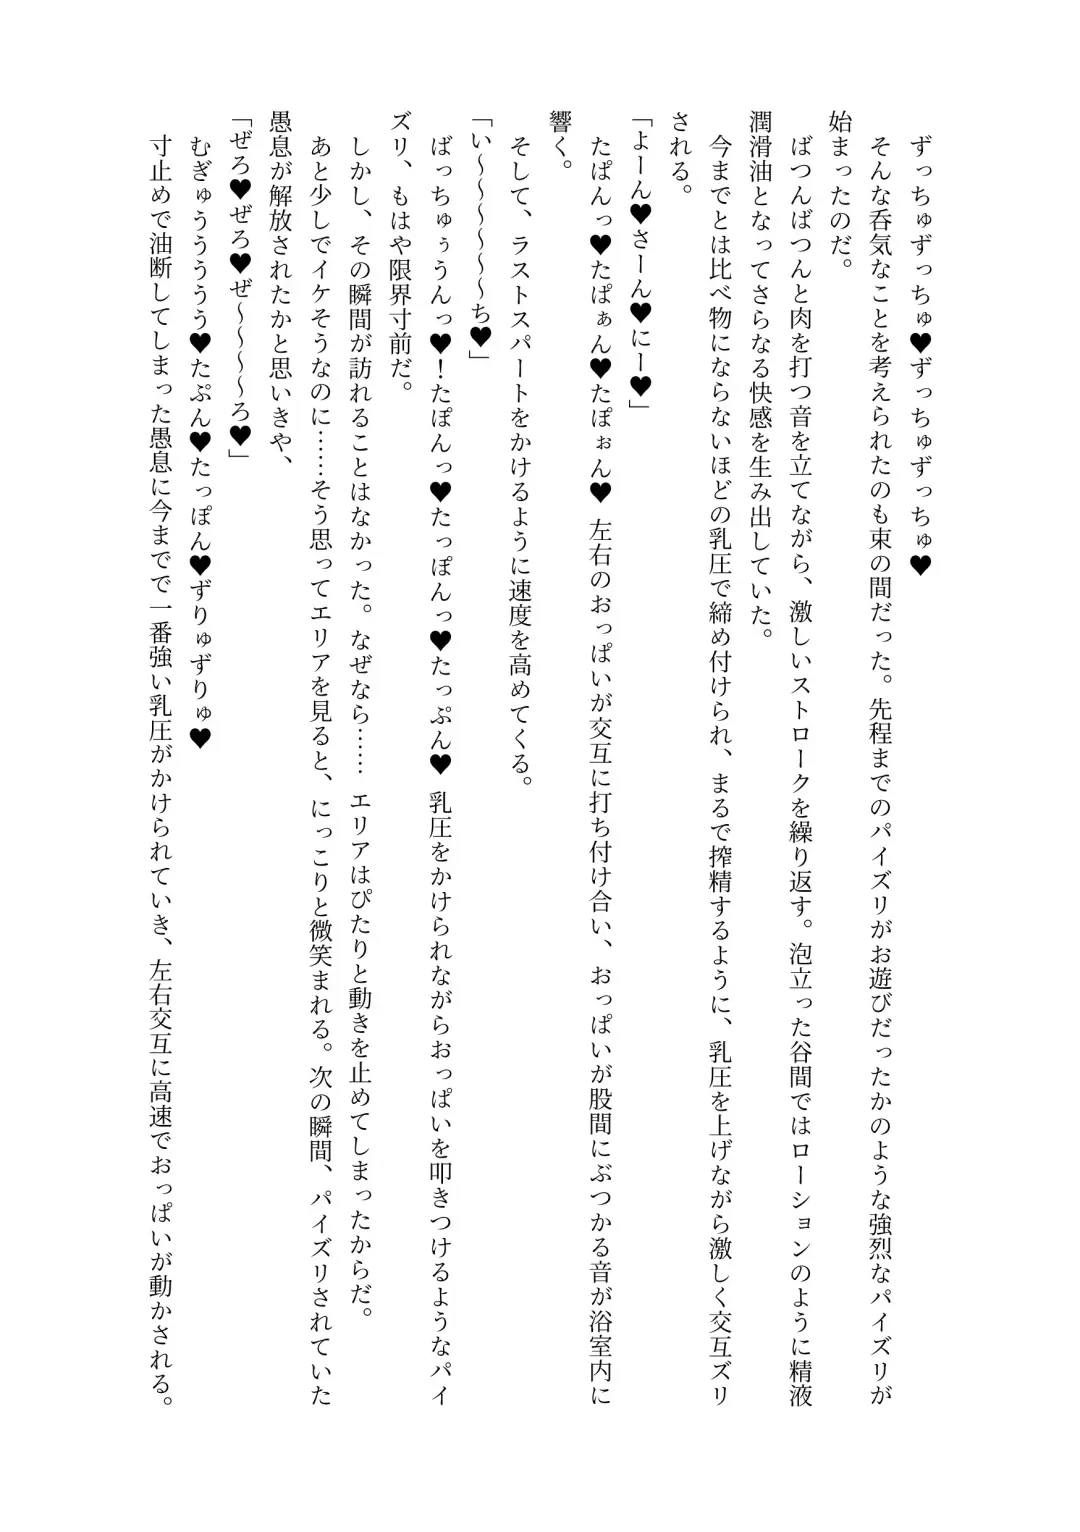 ずっちゅずっちゅ♥ずっちゅずっちゅ♥
そんな呑気なことを考えられたのも束の間だった。先程までのパイズリがお遊びだったかのような強烈なパイズリが
始まったのだ。
ばつんばつんと肉を打つ音を立てながら、激しいストロークを繰り返す。泡立った谷間ではローションのように精液
潤滑油となってさらなる快感を生み出していた。
今までとは比べ物にならないほどの乳圧で締め付けられ、まるで搾精するように、乳圧を上げながら激しく交互ズリ
される。
「よーん♥さーん♥にー♥」
たぱんっ♥たぱぁん♥たぽぉん♥ 左右のおっぱいが交互に打ち付け合い、おっぱいが股間にぶつかる音が浴室内に
響く。
そして、ラストスパートをかけるように速度を高めてくる。
「い～～～～～～ち♥」
ばっちゅぅうんっ♥！たぽんっ♥たっぽんっ♥たっぷん♥ 乳圧をかけられながらおっぱいを叩きつけるようなパイ
ズリ、もはや限界寸前だ。
しかし、その瞬間が訪れることはなかった。なぜなら…… エリアはぴたりと動きを止めてしまったからだ。
あと少しでイケそうなのに……そう思ってエリアを見ると、にっこりと微笑まれる。次の瞬間、パイズリされていた
愚息が解放されたかと思いきや、
「ぜろ♥ぜろ♥ぜ～～～～ろ♥」
むぎゅうううう♥たぷん♥たっぽん♥ずりゅずりゅ♥
寸止めで油断してしまった愚息に今までで一番強い乳圧がかけられていき、左右交互に高速でおっぱいが動かされる。